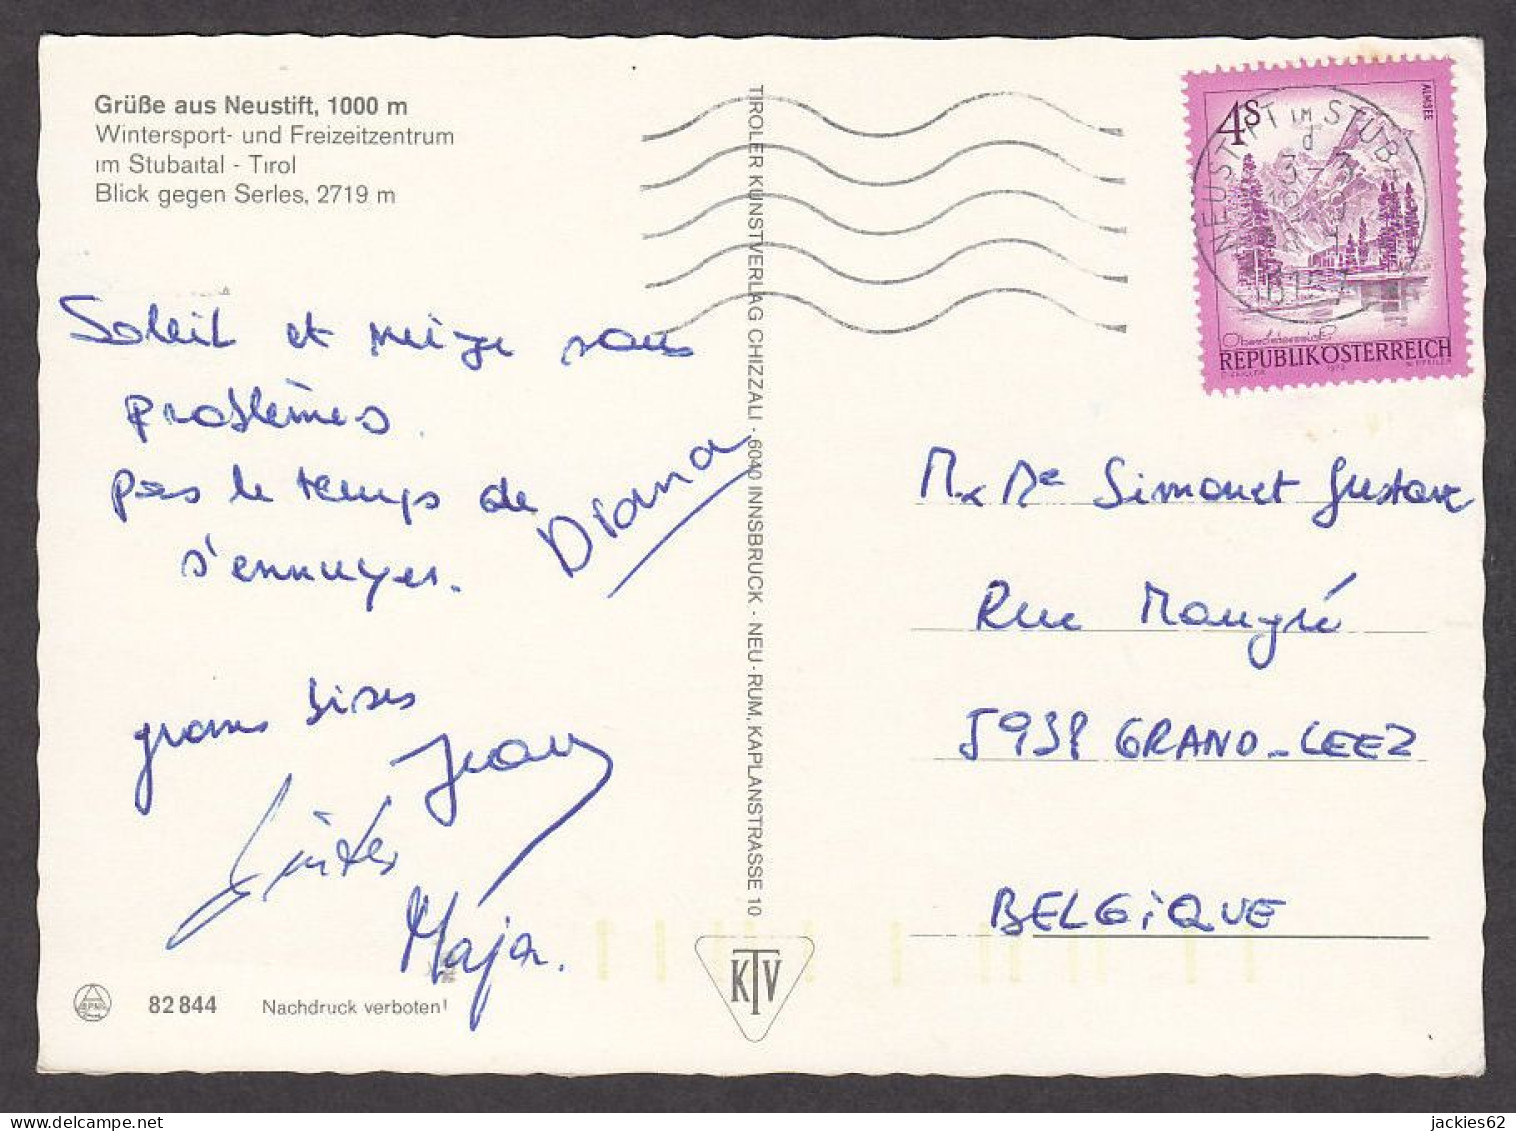 Grüße aus Neustift, 1000 m
Wintersport- und Freizeitzentrum
im Stubaital - Tirol
Blick gegen Serles, 2719 m
Soleil et neige sans
problèmes.
pas le temps de
s'ennuyer.
Diana
gran bises
Jean
Günter
Maja.
82 844 Nachdruck verboten!
TIROLER KUNSTVERLAG CHIZZALI · 6040 INNSBRUCK - NEU-RUM, KAPLANSTRASSE 10
KTV
4S
ALMSEE
NEUSTIFT IM STUB
d
Oberösterreich
REPUBLIK ÖSTERREICH
M. & Me Simonet Gustave
Rue Maugré
5938 GRAND-LEEZ
BELGIQUE
jackies62